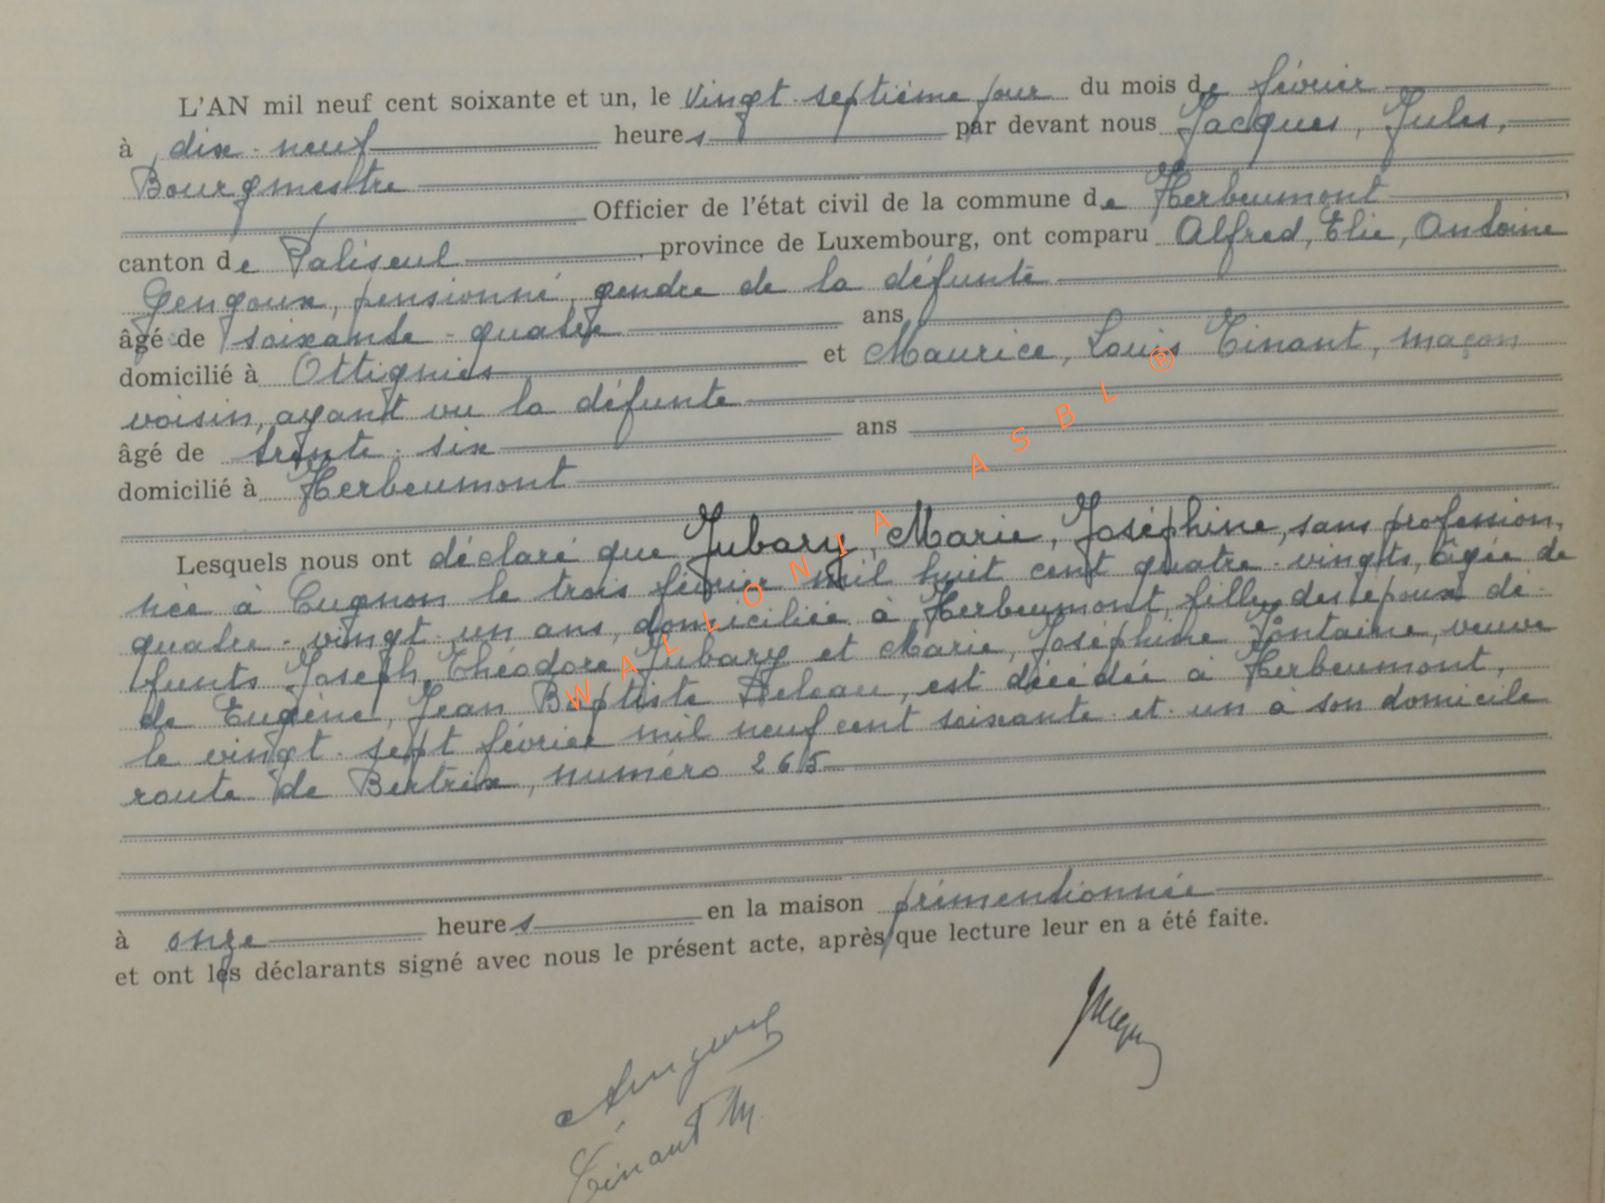 L'AN mil neuf cent soixante et un, le vingt-septième jour du mois de février
à dix-neuf heures par devant nous Jacques, Jules,
Bourgmestre
Officier de l'état civil de la commune de Herbeumont
canton de Paliseul, province de Luxembourg, ont comparu Alfred, Elie, Antoine
Gengoux, pensionné, gendre de la défunte
âgé de soixante-quatre ans
domicilié à Ottignies et Maurice, Louis Tinant, maçon
voisin, ayant vu la défunte
âgé de trente-six ans
domicilié à Herbeumont
Lesquels nous ont déclaré que Jubary, Marie, Joséphine, sans profession,
née à Cugnon le trois février mil huit cent quatre-vingts, âgée de
quatre-vingt-un ans, domiciliée à Herbeumont, fille des époux dé-
funts Joseph, Théodore Jubary et Marie, Joséphine Fontaine, veuve
de Eugène, Jean Baptiste, est décédée à Herbeumont,
le vingt-sept février mil neuf cent soixante-et-un à son domicile
route de Bertrix, numéro 265
à onze heures en la maison prémentionnée
et ont les déclarants signé avec nous le présent acte, après que lecture leur en a été faite.
Tinant M.
WALLONIA ASBL ®